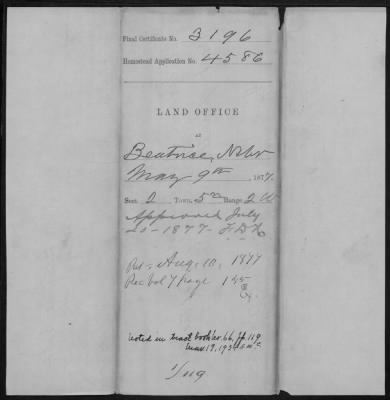 Final Certificate No. 3196
Homestead Application No. 4586
LAND OFFICE
at
Beatrice, Nebr
May 9th, 1877.
Sect. 2 Town. 5 Range 2 W
Approved July
20-1877-
Aug. 10, 1877
Rec Vol 7 page 155
Noted in Tract Book vol. 66, pp. 119
Mar 19, 195
1/119